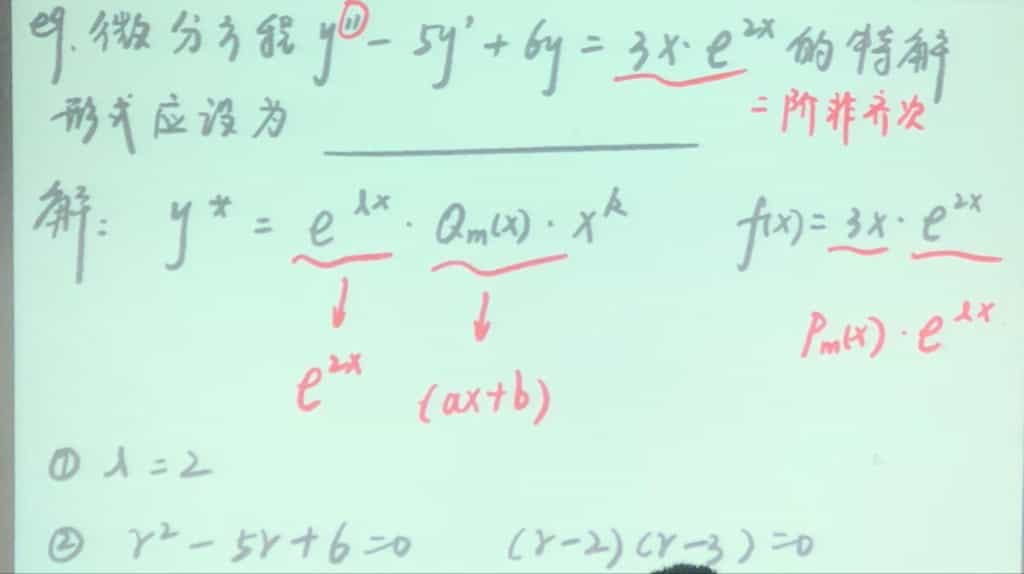 eg. 微分方程 y'' - 5y' + 6y = 3x·e^{2x} 的特解
形式应设为 ________
二阶非齐次
解: y* = e^{λx} · Q_m(x) · x^k f(x) = 3x · e^{2x}
P_m(x) · e^{λx}
e^{2x} (ax+b)
① λ = 2
② r² - 5r + 6 = 0 (r-2)(r-3) = 0